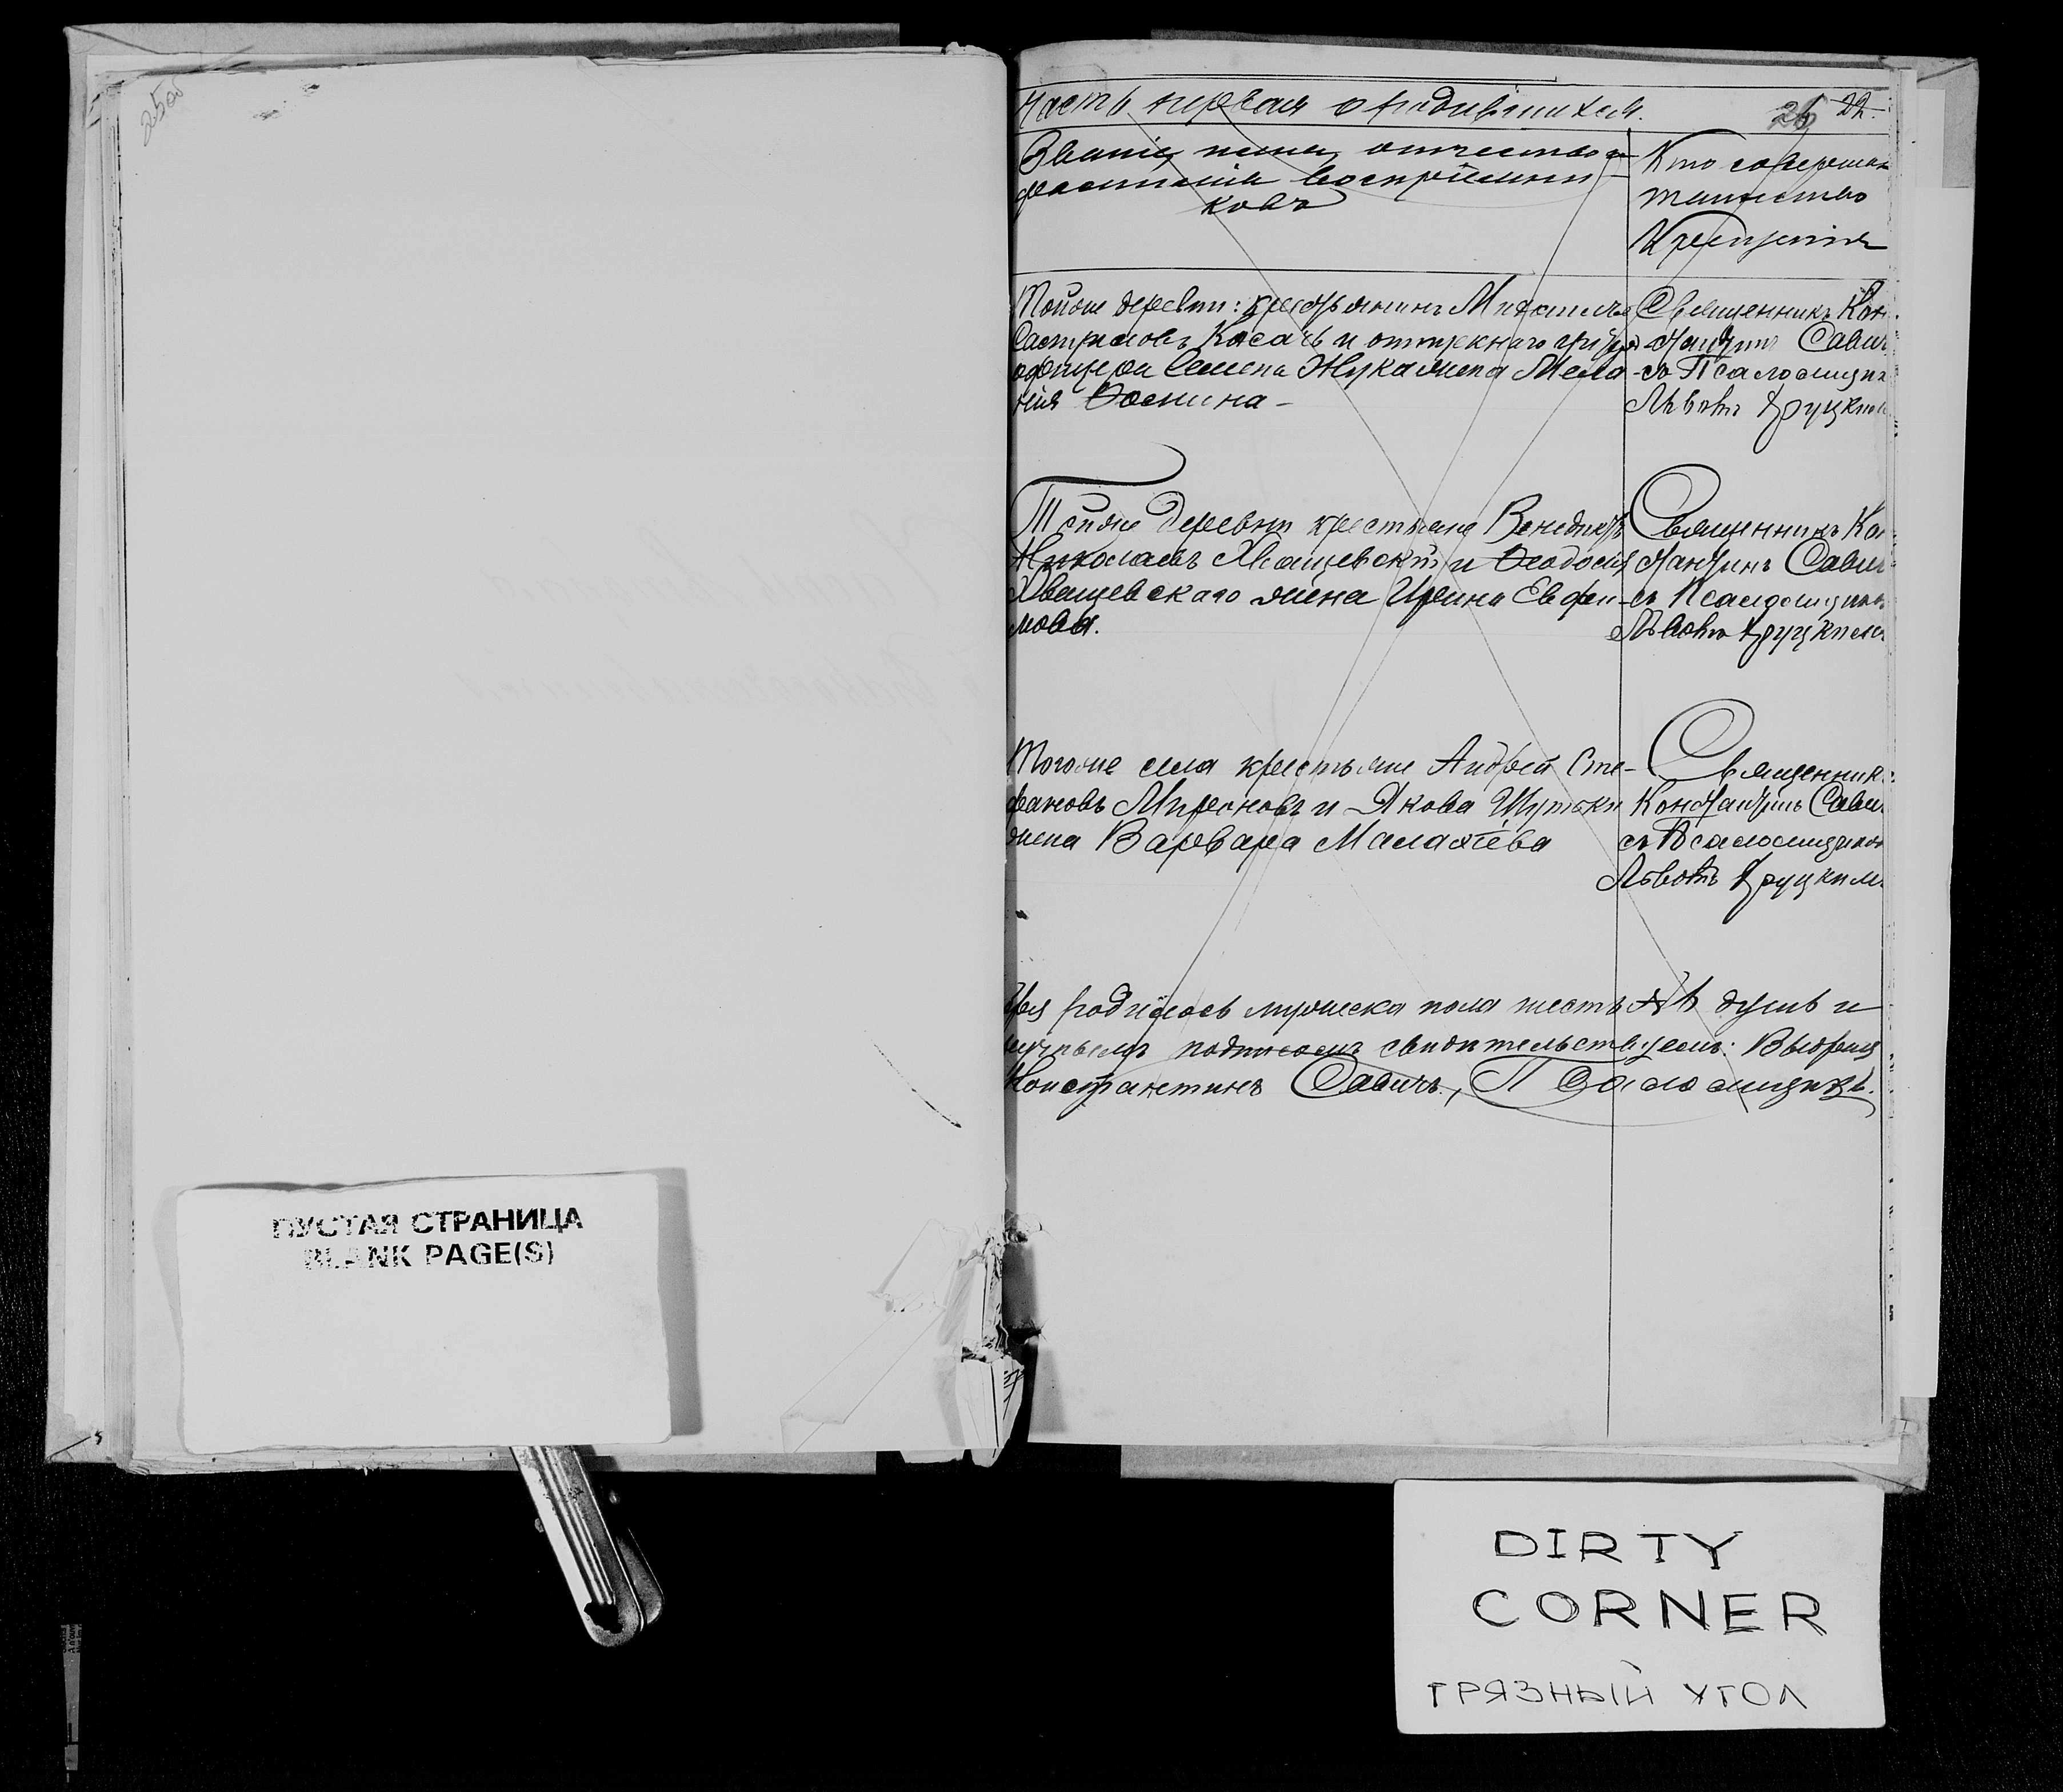 Часть первая о родившихся. 26 22.
Званіе, имя, отчество и
фамилія воспріемни-
ковъ
Кто совершалъ
таинство
Крещенія
Тойже деревни: крестьянинъ Михаилъ
Косачъ и отпускнаго унтеръ
офицера Семена Жука жена Мела-
нія Фомина -
Священникъ Кон-
стантинъ Савич
съ Псаломщик
Львомъ Хруцким
Тойже деревни крестьяне Венедиктъ
Николаевъ Хващевскій и Ѳеодосія
Хващевскаго жена Ирина Евфи-
мова.
Священникъ Кон
стантинъ Савич
съ Псаломщиком
Львомъ Хруцким
Тогоже села крестьяне Андрей Сте-
фановъ Мироновъ и Якова Шутько
жена Варвара Малахіева
Священник
Константинъ Савич
съ Псаломщиком
Львомъ Хруцким
родилось мужеска пола шесть душъ и
подписомъ свидѣтельствуемъ:
Константинъ Савичъ, Псаломщикъ.
2500
ПУСТАЯ СТРАНИЦА
BLANK PAGE(S)
DIRTY
CORNER
ГРЯЗНЫЙ УГОЛ